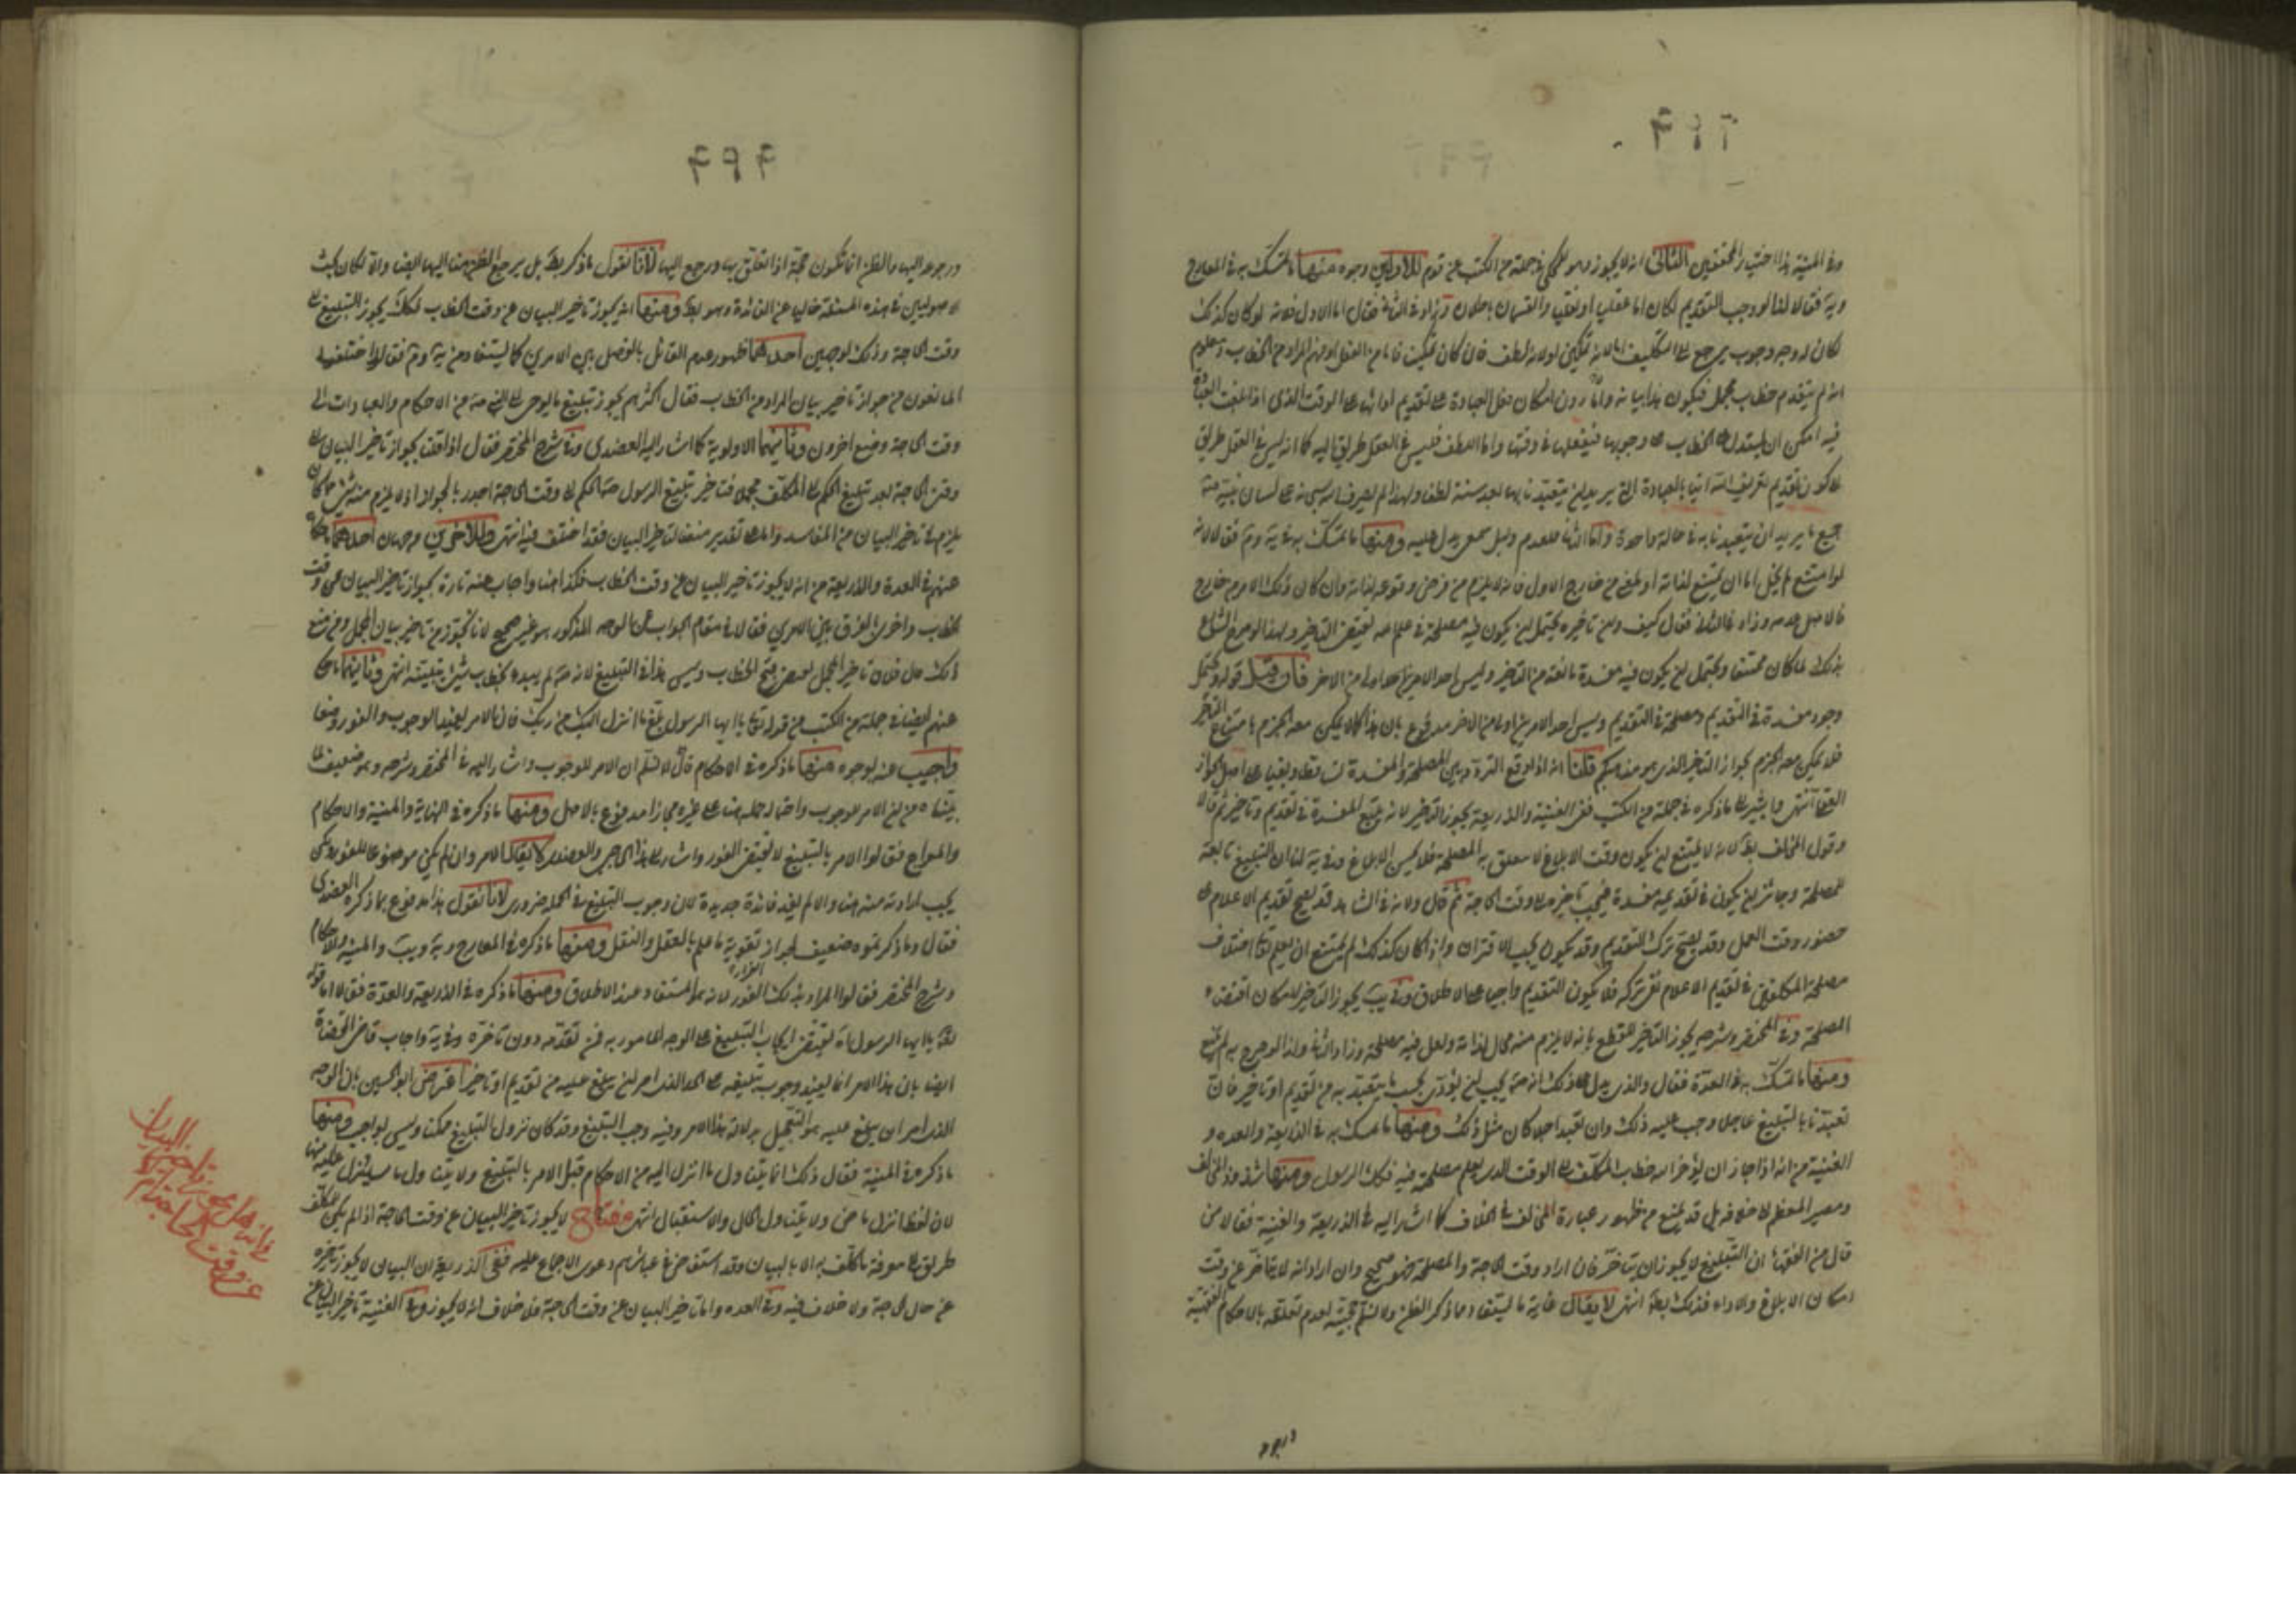 وفى المنية هذا اختيار المحققين الثانى انه لا يجوز وهو المحكى فى جملة من الكتب عن قوم للاولين وجوه منها ما تمسك به فى المعارج
ويه فقالا لنا لو وجب التقديم لكان اما عقليا او نقليا والقسمان باطلان فقال اما الاول فلانه لو كان كذلك
لكان له وجه وجوب يرجع الى التكليف اما لانه تمكين او لانه لطف فان كان تمكينا فاما من الفعل او فهم المراد من الخطاب ومعلوم
انه لم يتقدم خطاب مجمل فيكون هذا بيانه واما امكان فعل العبادة على تقديم ادائها على الوقت الذى اذا بلغت العبادة
فيه امكن ان يستدل بالخطاب على وجوبها فيفعلها فى وقتها واما اللطف فليس فى العقل طريق اليه كما انه ليس فى العقل طريق
الى كون تقديم تعريف الله ايانا بالعبادة التى يريد ان يتعبدنا بها بعد سنة لطف ولهذا لم يعرف الله سبحانه على لسان نبيه
جميع ما يريد ان يتعبدنا به فى حالة واحدة واما الثانى فلعدم دليل سمعى يدل عليه ومنها ما تمسك به فى ية وم فقالا لانه
لو امتنع لم يخل اما ان يمتنع لذاته او لمعنى من خارج الاول فانه لا يلزم من فرض وقوعه لذاته وان كان ذلك لامر من خارج
فالاصل عدمه وزاد فى الثانى فقال كيف وان تاخيره يحتمل ان يكون فيه مصلحة فى علم الله تقتضى التاخير ولهذا لو صرح الشارع
بذلك لما كان ممتنعا ويحتمل ان يكون فيه مفسدة مانعة من التاخير وليس احد الامرين اولى من الاخر فان قيل قوله ويحتمل
وجود مفسدة فى التقديم ومصلحة فى التقديم وليس احد الامرين اولى من الاخر مدفوع بان هذا كما لا يمكن معه الجزم بامتناع التاخير
فلا يمكن معه الجزم بجواز التاخير الذى هو مذهبكم قلنا انه اذا وقع التردد بين المصلحة والمفسدة تساقطا وبقينا على اصل الجواز
العقلى انتهى ويشير الى ما ذكره فى جملة من الكتب ففى الغنية والذريعة يجوز التاخير لانه يتبع المفسدة فى تقديم وتاخير ثم قالا
وقول المخالف بط لانه لا يمتنع ان يكون وقت الابلاغ لا تتعلق به المصلحة فلا يحسن الابلاغ وفى ية لنا ان التبليغ تابعة
للمصلحة وجائز ان يكون فى تقديمه مفسدة فيجب تاخيره الى وقت الحاجة ثم قال ولانه فى الشاهد قد يصح تقديم الاعلام على
حضور وقت العمل وقد يصح ترك التقديم وقد يكون يجب الاقتران واذا كان كذلك لم يمتنع ان يعلم تعالى اختلاف
مصلحة المكلفين فى تقديم الاعلام وفى تركه فلا يكون التقديم واجبا على الاطلاق وفى يب يجوز التاخير لامكان اقتضاء
المصلحة وفى المختصر وشرحه يجوز التاخير للقطع بانه لا يلزم منه محال لذاته ولعل فيه مصلحة وزاد الثانى ولذا لو صرح به لم يمتنع
ومنها ما تمسك به فى العدة فقال والذى يدل على ذلك انه يجب ان يؤدى بحسب ما يتعبد به من تقديم او تاخير فان
تعبدنا بالتبليغ عاجلا وجب عليه ذلك وان تعبد اجلا كان مثل ذلك ومنها ما تمسك به فى الذريعة والعدة و
الغنية من انه اذا جاز ان يؤخر الله خطاب المكلف الى الوقت الذى يعلم مصلحة فيه فكذلك الرسول ومنها شذوذ المخالف
ومصير المعظم الى خلافه بل قد يمنع من ظهور عبارة المخالف فى الخلاف كما اشار اليه فى الذريعة والغنية فقالا من
قال من الفقهاء ان التبليغ لا يجوز ان يتاخر فان اراد وقت الحاجة والمصلحة فهو صحيح وان اراد انه لا يتاخر عن وقت
امكان الابلاغ والاداء فذلك بط انتهى لا يقال غاية ما يستفاد مما ذكر الظن ولا نسلم حجيته لعدم تعلقه بالاحكام الفقهية
ورجوعه
ورجوعه اليها والظن انما تكون حجة اذا تعلق بها ورجع اليها لانا نقول ما ذكر بط بل يرجع الظن هنا اليها ايضا والا لكان بحث
الاصوليين فى هذه المسئلة خاليا عن الفائدة وهو بط ومنها انه يجوز تاخير البيان عن وقت الخطاب فكك يجوز التبليغ الى
وقت الحاجة وذلك لوجهين احدهما ظهور عدم القائل بالفصل بين الامرين كما يستفاد من ية وم فقالا اختلفوا
المانعون من جواز تاخير بيان المراد من الخطاب فقال اكثرهم يجوز تبليغ ما يوحى الى النبى ص من الاحكام والعبادات الى
وقت الحاجة ومنع اخرون وثانيهما الاولوية كما اشار اليه العضدى وفى شرح المختصر فقال اذا قلنا بجواز تاخير البيان الى
وقت الحاجة بعد تبليغ الحكم الى المكلف مجملا فتاخير تبليغ الرسول ص الحكم الى وقت الحاجة اجدر بالجواز اذ لا يلزم منه شئ مما كان
يلزم فى تاخير البيان من المفاسد واما على تقدير منعنا لتاخير البيان فقد اختلف فيه انتهى وللاخرين وجهان احدهما ما حكاه
عنهم فى العدة والذريعة من انه لا يجوز تاخير البيان عن وقت الخطاب فكذا هنا واجاب عنه تارة بجواز تاخير البيان عن وقت
الخطاب واخرى بالفرق بين الامرين فقالا فى مقام الجواب عن الوجه المذكور هو غير صحيح لانا نجوز من تاخير بيان المجمل ومن منع
ذلك قال ان تاخير المجمل يقتضى قبح الخطاب وليس هذا فى التبليغ لانه ص لم يبدء بخطاب شئ يتبين انتهى وثانيهما ما حكى
عنهم ايضا فى جملة من الكتب من قوله تعالى يا ايها الرسول بلغ ما انزل اليك من ربك فان الامر يفيد الوجوب والفور وضعا
واجيب عنه بوجوه منها ما ذكره فى الاحكام قال لا نسلم ان الامر للوجوب واشار اليه فى المختصر وشرحه وهو ضعيف لما
بيناه من ان الامر للوجوب واحتمال حمله هنا على غيره مجازا مدفوع بالاصل ومنها ما ذكره فى النهاية والمنية والاحكام
والمعراج فقالوا الامر بالتبليغ لا يقتضى الفور واشار الى هذا الحاجبى والعضدى لا يقال الامر وان لم يكن موضوعا للفور ولكن
يجب ارادته منه هنا والا لم يفد فائدة جديدة لان وجوب التبليغ فى الجملة ضرورى لانا نقول هذا مدفوع بما ذكره العضدى
فقال وما ذكرتموه ضعيف لجواز تقوية ما علم بالعقل والنقل ومنها ما ذكره فى المعارج وية ويب والمنية والاحكام
وشرح المختصر فقالوا المراد بذلك القران لانه هو المستفاد عند الاطلاق ومنها ما ذكره فى الذريعة والعدة فقالا اما قوله
تعالى يا ايها الرسول اه يقتضى ايجاب التبليغ على الوجه المامور به فمن تقدمه دون تاخره وفى ية واجاب قاضى القضاة
ايضا بان هذا الامر انما يفيد وجوب تبليغه على الحد الذى امر ان يبلغ عليه من تقديم او تاخير اعترض ابو الحسين بان الوجه
الذى امر ان يبلغ عليه هو التعجيل بدلالة هذا الامر وفيه وجب التبليغ وقد كان نزول التبليغ ممكنا وليس بواجب ومنها
ما ذكره فى المنية فقال ذلك انما يتناول ما انزل اليه من الاحكام قبل الامر بالتبليغ ولا يتناول ما سينزل عليه منها
لان لفظ انزل ماض ولا يتناول الحال والاستقبال انتهى مفتاح لا يجوز تاخير البيان عن وقت الحاجة اذا لم يكن للمكلف
طريق الى معرفة ما كلف به الا بالبيان وقد استفاض فى عباراتهم دعوى الاجماع عليه ففى الذريعة ان البيان لا يجوز تاخيره
عن حال الحاجة ولا خلاف فيه وفى العدة واما تاخير البيان عن وقت الحاجة فلا خلاف انه لا يجوز وفى الغنية تاخير البيان عن